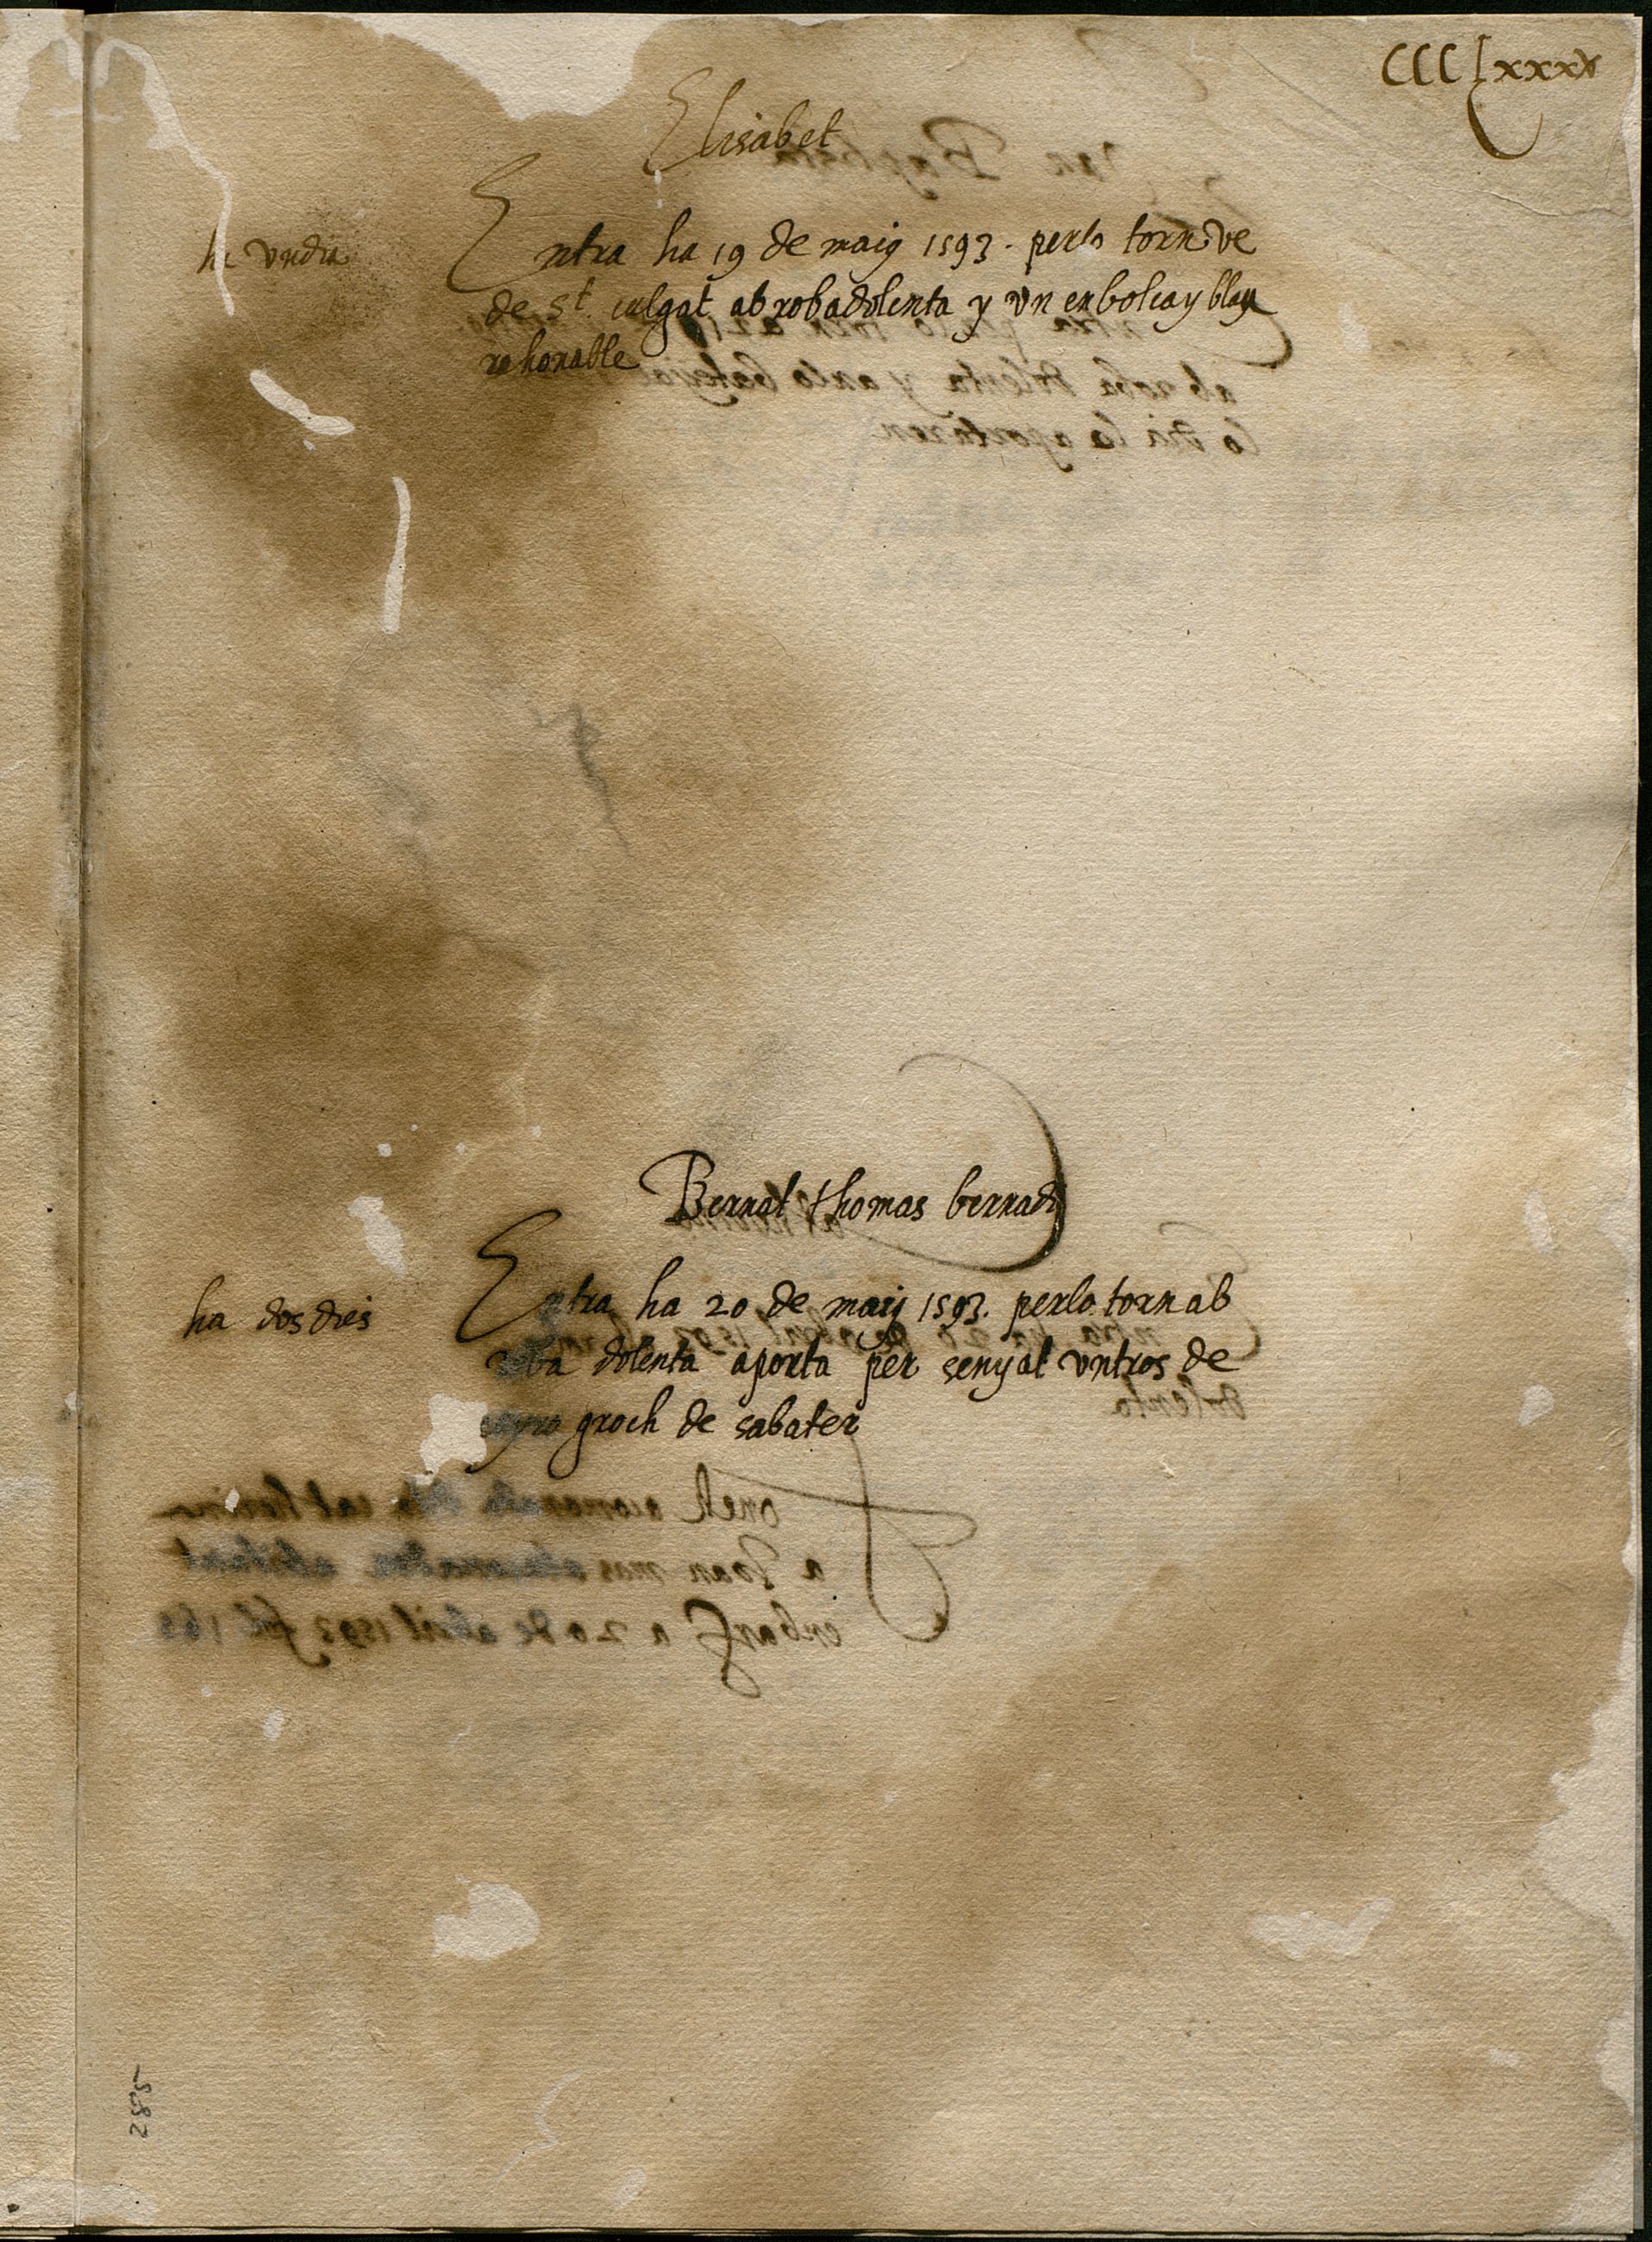 CCCLxxxx
Elisabet
ha un dia
Entra ha 19 de maig 1593. perlo torn ve
de St. culgat ab roba dolenta y un enbolcay blau
rahonable
Bernat thomas bernadi
ha dos dies
Entra ha 20 de maig 1593. perlo torn ab
roba dolenta aporta per senyal untros de
cuyro groch de sabater
2855